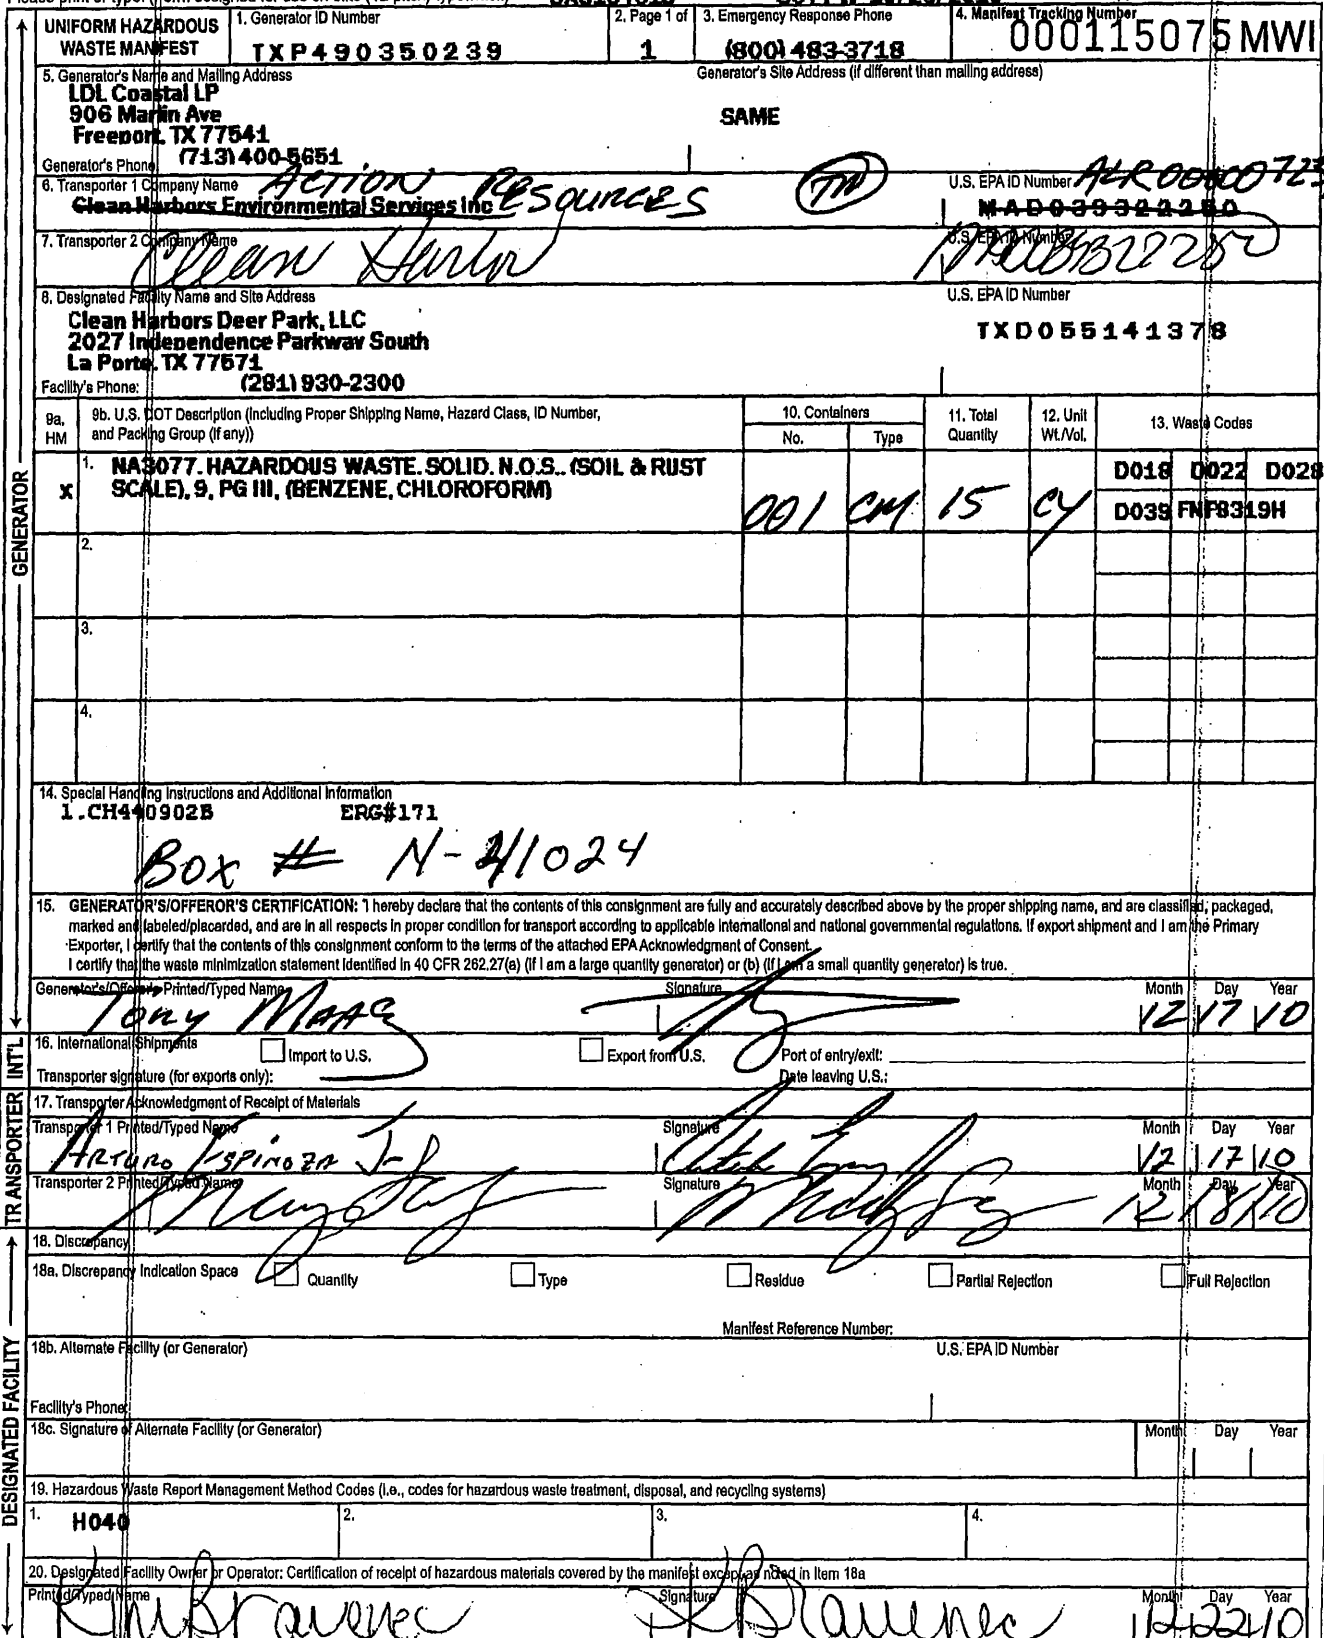 UNIFORM HAZARDOUS WASTE MANIFEST
1. Generator ID Number
TXP490350239
2. Page 1 of
1
3. Emergency Response Phone
(800) 483-3718
4. Manifest Tracking Number
000115075 MWI
5. Generator's Name and Mailing Address
LDL Coastal LP
906 Marlin Ave
Freeport, TX 77541
Generator's Phone (713) 400-5651
Generator's Site Address (if different than mailing address)
SAME
6. Transporter 1 Company Name ACTION RESOURCES
Clean Harbors Environmental Services Inc
TN
U.S. EPA ID Number
MAD039322250
7. Transporter 2 Company Name
Clean Harbor
U.S. EPA ID Number
8. Designated Facility Name and Site Address
Clean Harbors Deer Park, LLC
2027 Independence Parkway South
La Porte, TX 77571
Facility's Phone: (281) 930-2300
U.S. EPA ID Number
TXD055141378
9a. HM
9b. U.S. DOT Description (Including Proper Shipping Name, Hazard Class, ID Number,
and Packing Group (if any))
10. Containers
No.
Type
11. Total Quantity
12. Unit Wt./Vol.
13. Waste Codes
X
1. NA3077, HAZARDOUS WASTE, SOLID, N.O.S., (SOIL & RUST
SCALE), 9, PG III, (BENZENE, CHLOROFORM)
001 CM 15 CY
D018 D022 D028
D039 FNF8319H
2.
3.
4.
GENERATOR
14. Special Handling Instructions and Additional Information
1.CH440902B ERG#171
BOX # N-21024
15. GENERATOR'S/OFFEROR'S CERTIFICATION: "I hereby declare that the contents of this consignment are fully and accurately described above by the proper shipping name, and are classified, packaged,
marked and labeled/placarded, and are in all respects in proper condition for transport according to applicable international and national governmental regulations. If export shipment and I am the Primary
Exporter, I certify that the contents of this consignment conform to the terms of the attached EPA Acknowledgment of Consent.
I certify that the waste minimization statement identified in 40 CFR 262.27(a) (if I am a large quantity generator) or (b) (if I am a small quantity generator) is true.
Generator's/Offeror's Printed/Typed Name
Tony
Signature
Month Day Year
12 17 10
INT'L
16. International Shipments
Import to U.S.
Export from U.S.
Port of entry/exit:
Transporter signature (for exports only):
Date leaving U.S.:
TRANSPORTER
17. Transporter Acknowledgment of Receipt of Materials
Transporter 1 Printed/Typed Name
ARTURO ESPINOZA
Signature
Month Day Year
12 17 10
Transporter 2 Printed/Typed Name
Signature
Month Day Year
12 18 10
DESIGNATED FACILITY
18. Discrepancy
18a. Discrepancy Indication Space
Quantity
Type
Residue
Partial Rejection
Full Rejection
Manifest Reference Number:
18b. Alternate Facility (or Generator)
U.S. EPA ID Number
Facility's Phone:
18c. Signature of Alternate Facility (or Generator)
Month Day Year
19. Hazardous Waste Report Management Method Codes (i.e., codes for hazardous waste treatment, disposal, and recycling systems)
1. H040
2.
3.
4.
20. Designated Facility Owner or Operator: Certification of receipt of hazardous materials covered by the manifest except as noted in Item 18a
Printed/Typed Name
Kim Bravenec
Signature
K Bravenec
Month Day Year
12 22 10